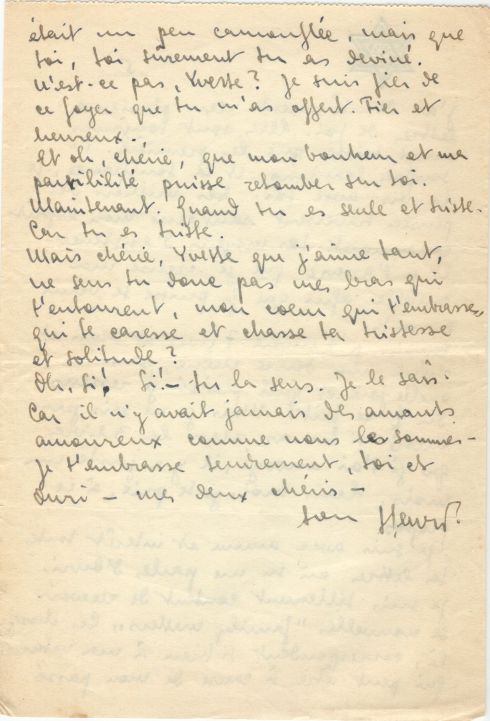 était un peu camouflée, mais que
toi, toi sûrement tu as deviné.
N'est-ce pas, Yvette? Je suis fier de
ce foyer que tu m'as offert. Fier et
heureux.
Et oh, chérie, que mon bonheur et ma
puisse retomber sur toi.
Maintenant. Quand tu es seule et triste.
Car tu es triste.
Mais chérie, Yvette que j'aime tant,
ne sens tu donc pas mes bras qui
t'entourent, mon coeur qui t'embrasse,
qui te caresse et chasse ta tristesse
et solitude?
Oh, si! Si! – tu la sens. Je le sais.
Car il n'y avait jamais des amants
amoureux comme nous les sommes –
Je t'embrasse tendrement, toi et
– mes deux chéris –
ton Henri.